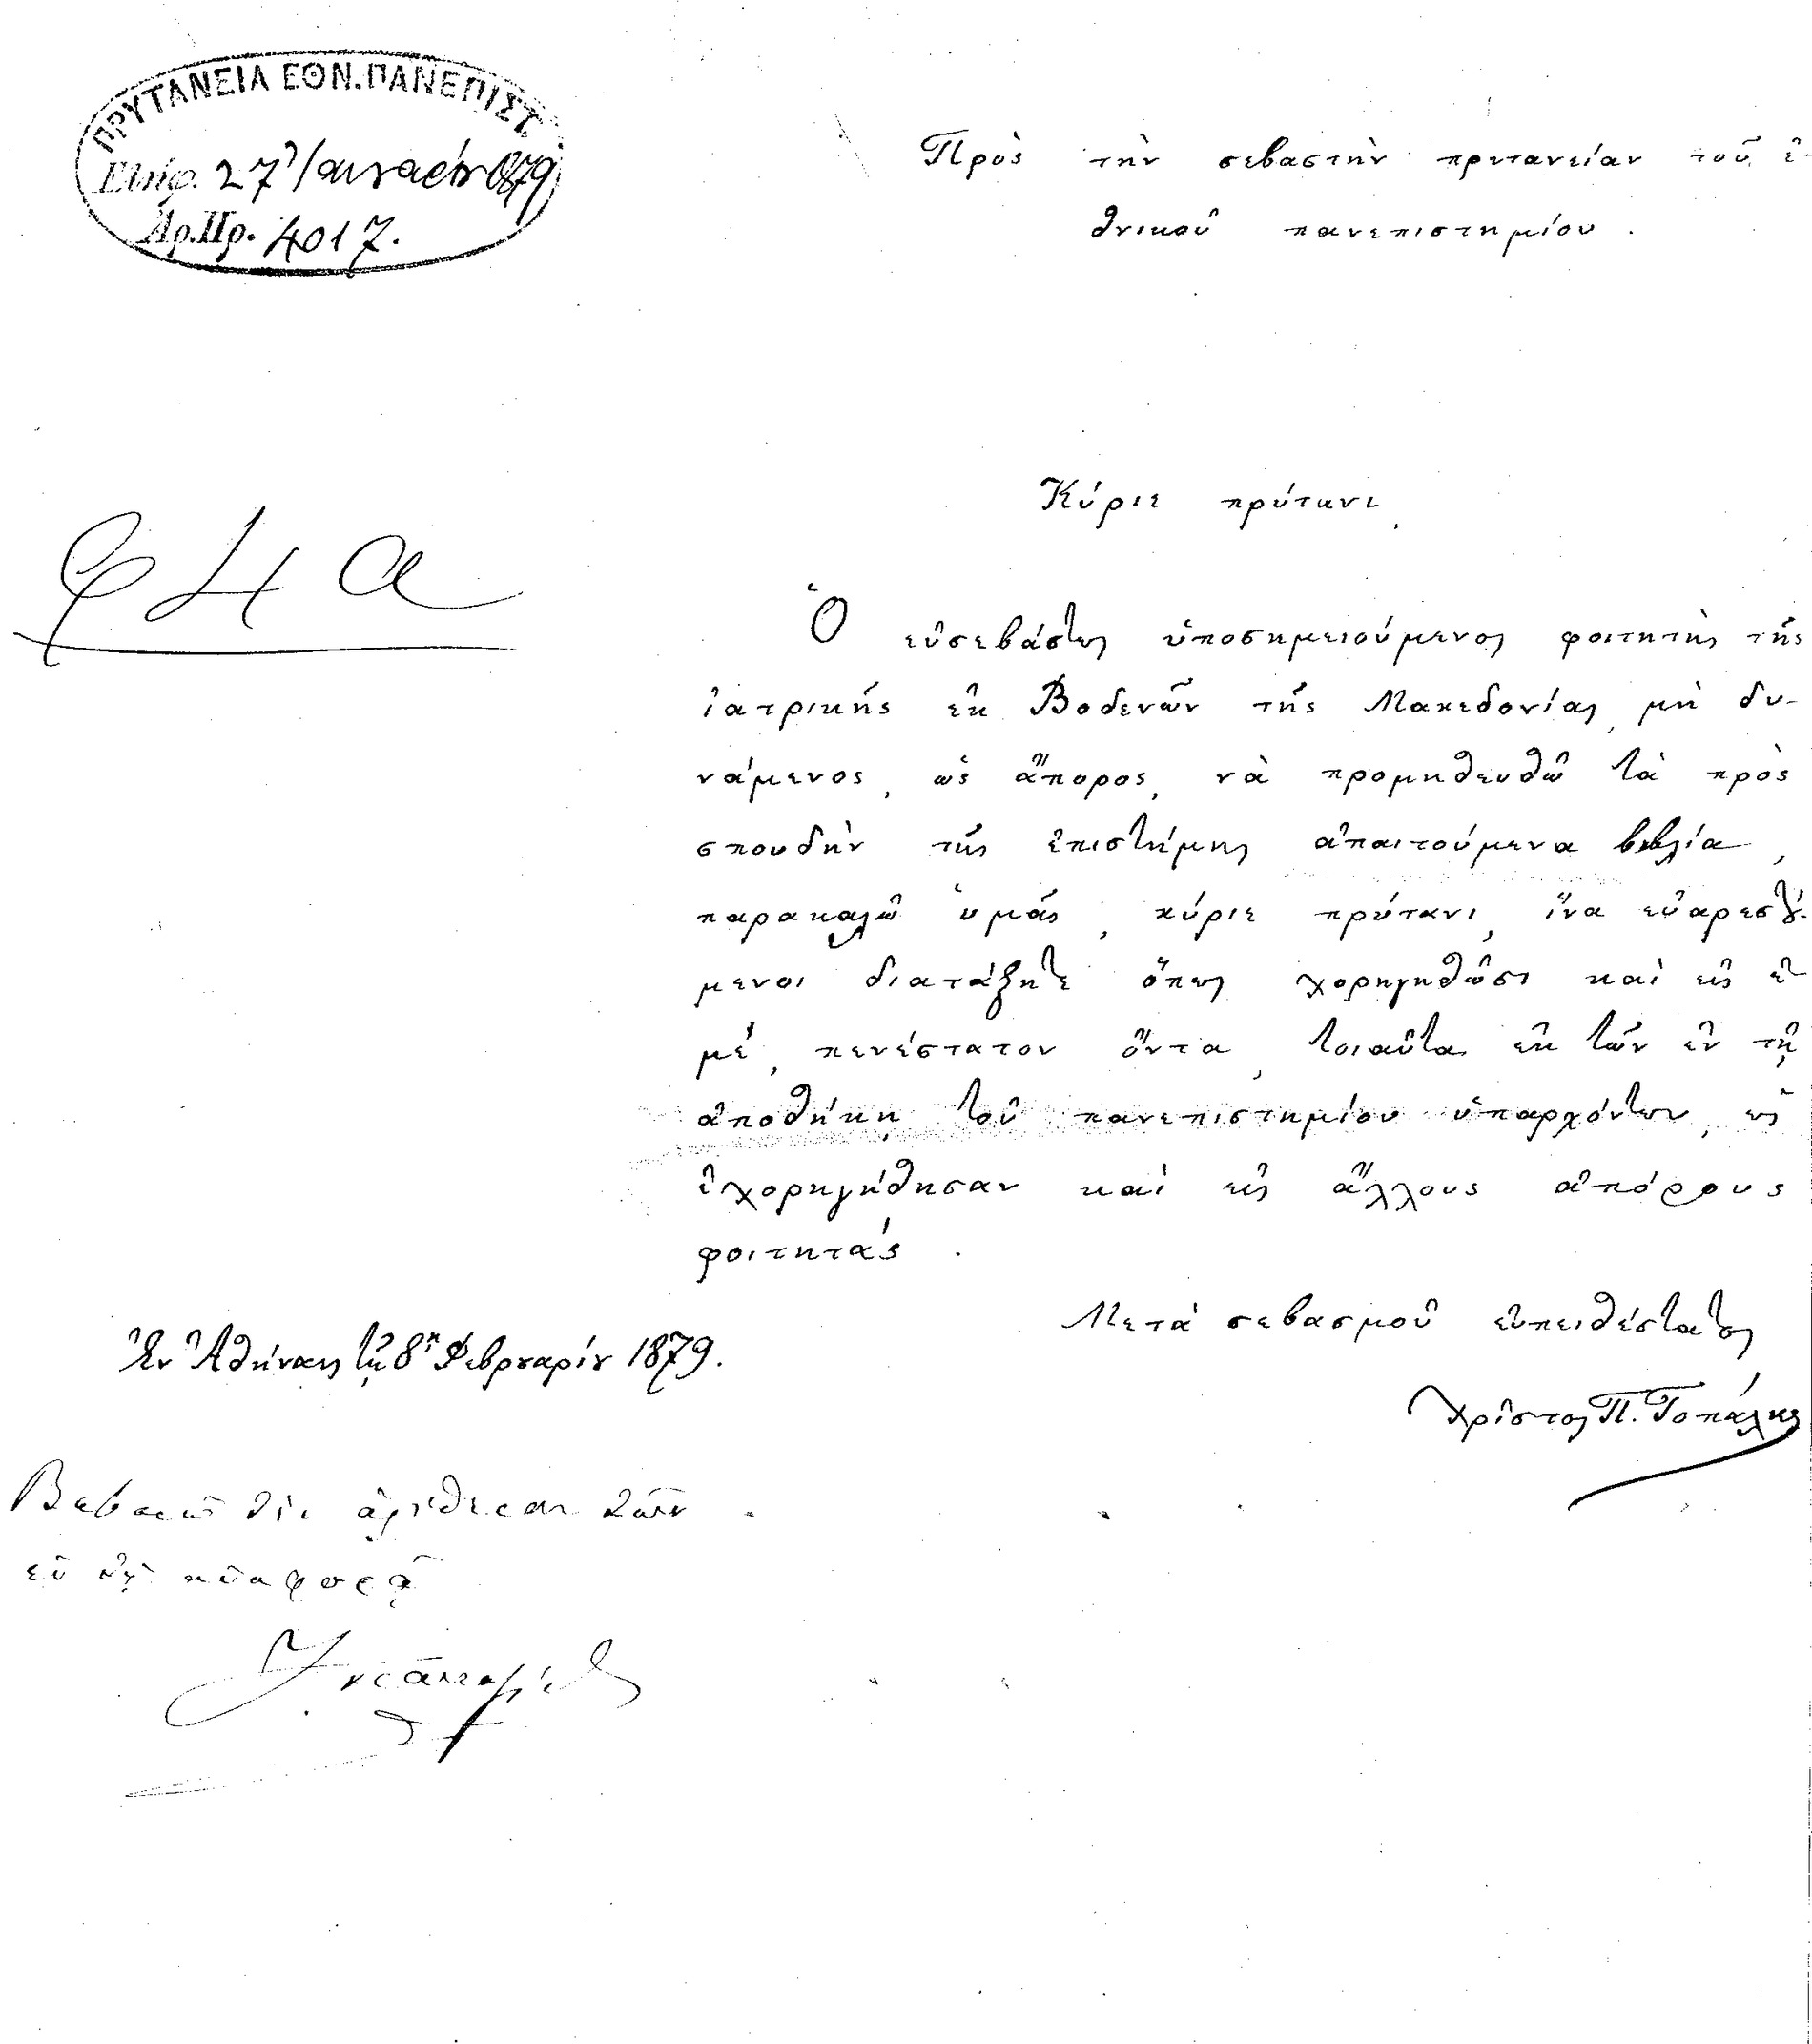 ΠΡΥΤΑΝΕΙΑ ΕΘΝ. ΠΑΝΕΠΙΣΤ.
Εἰσήρ. 27 Ἰανουαρίου 1879
Ἀρ. Πρ. 4017.
Πρὸς τὴν σεβαστὴν πρυτανείαν τοῦ ἐ-
θνικοῦ πανεπιστημίου.
Κύριε πρύτανι,
Ὁ εὐσεβάστως ὑποσημειούμενος φοιτητὴς τῆς
ἰατρικῆς ἐκ Βοδενῶν τῆς Μακεδονίας, μὴ δυ-
νάμενος, ὡς ἄπορος, νὰ προμηθευθῶ τὰ πρὸς
σπουδὴν τῆς ἐπιστήμης ἀπαιτούμενα βιβλία,
παρακαλῶ ὑμᾶς, κύριε πρύτανι, ἵνα εὐαρεστού-
μενοι διατάξητε ὅπως χορηγηθῶσι καὶ εἰς ἐ-
μέ, πενέστατον ὄντα, τοιαῦτα ἐκ τῶν ἐν τῇ
ἀποθήκῃ τοῦ πανεπιστημίου ὑπαρχόντων, ὡς
ἐχορηγήθησαν καὶ εἰς ἄλλους ἀπόρους
φοιτητάς.
Μετὰ σεβασμοῦ εὐπειθέστατος
Χρίστος Π. Γοπάλης
Ἐν Ἀθήναις τῇ 8ῃ Φεβρουαρίου 1879.
Βεβαιῶ τὴν ἀλήθειαν τῶν
ἐν τῇ ἀναφορᾷ